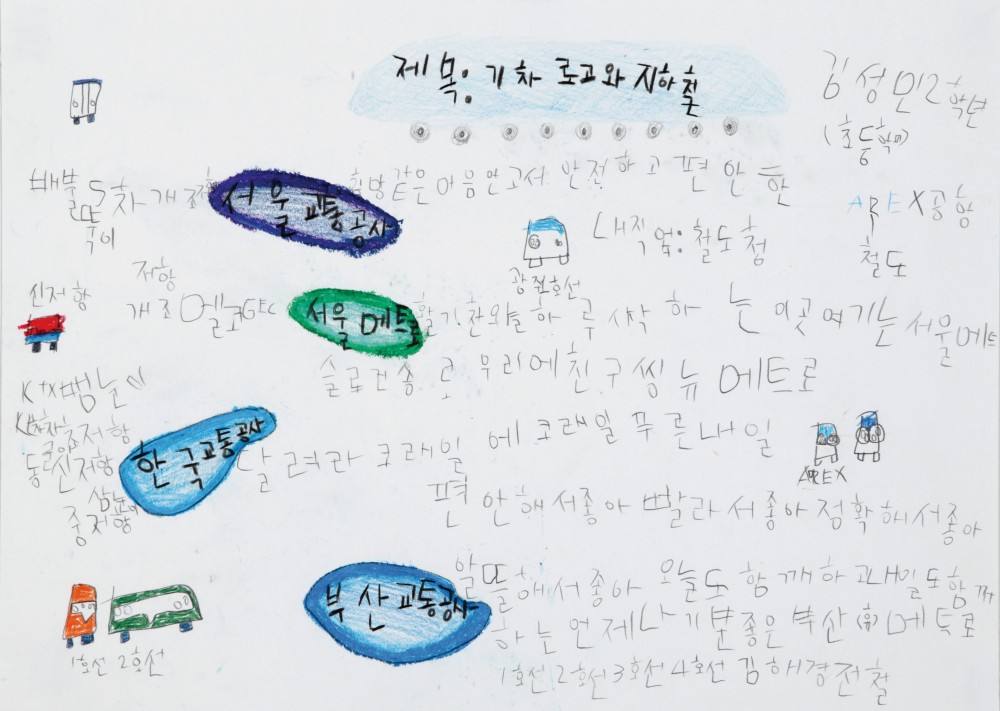 제목: 기차 로고와 지하철
김성민 2학년
(초등학교)
배불뚝이
5차 개조
서울교통공사
희망같은 어음안고서 안전하고 편안한
내직업: 철도청
APEX공항
철도
광전호선
신저항
저항
개조 멜코GEC
서울메트로
활기찬와를하루시작하는 이곳여기는 서울메트
슬로건송 로 우리에친구씽뉴메트로
KTX뱀눈이
저항
동신저항
중저항
한국교통공사
달려라 코레일 에코레일 푸른내일
편안해서좋아 빨라서좋아 정확해서좋아
APEX
부산교통공사
알뜰해서좋아 오늘도함깨하고내일도함까
하는언제나기분좋은부산(유)메트로
1호선2호선3호선4호선김해경전철
1호선 2호선